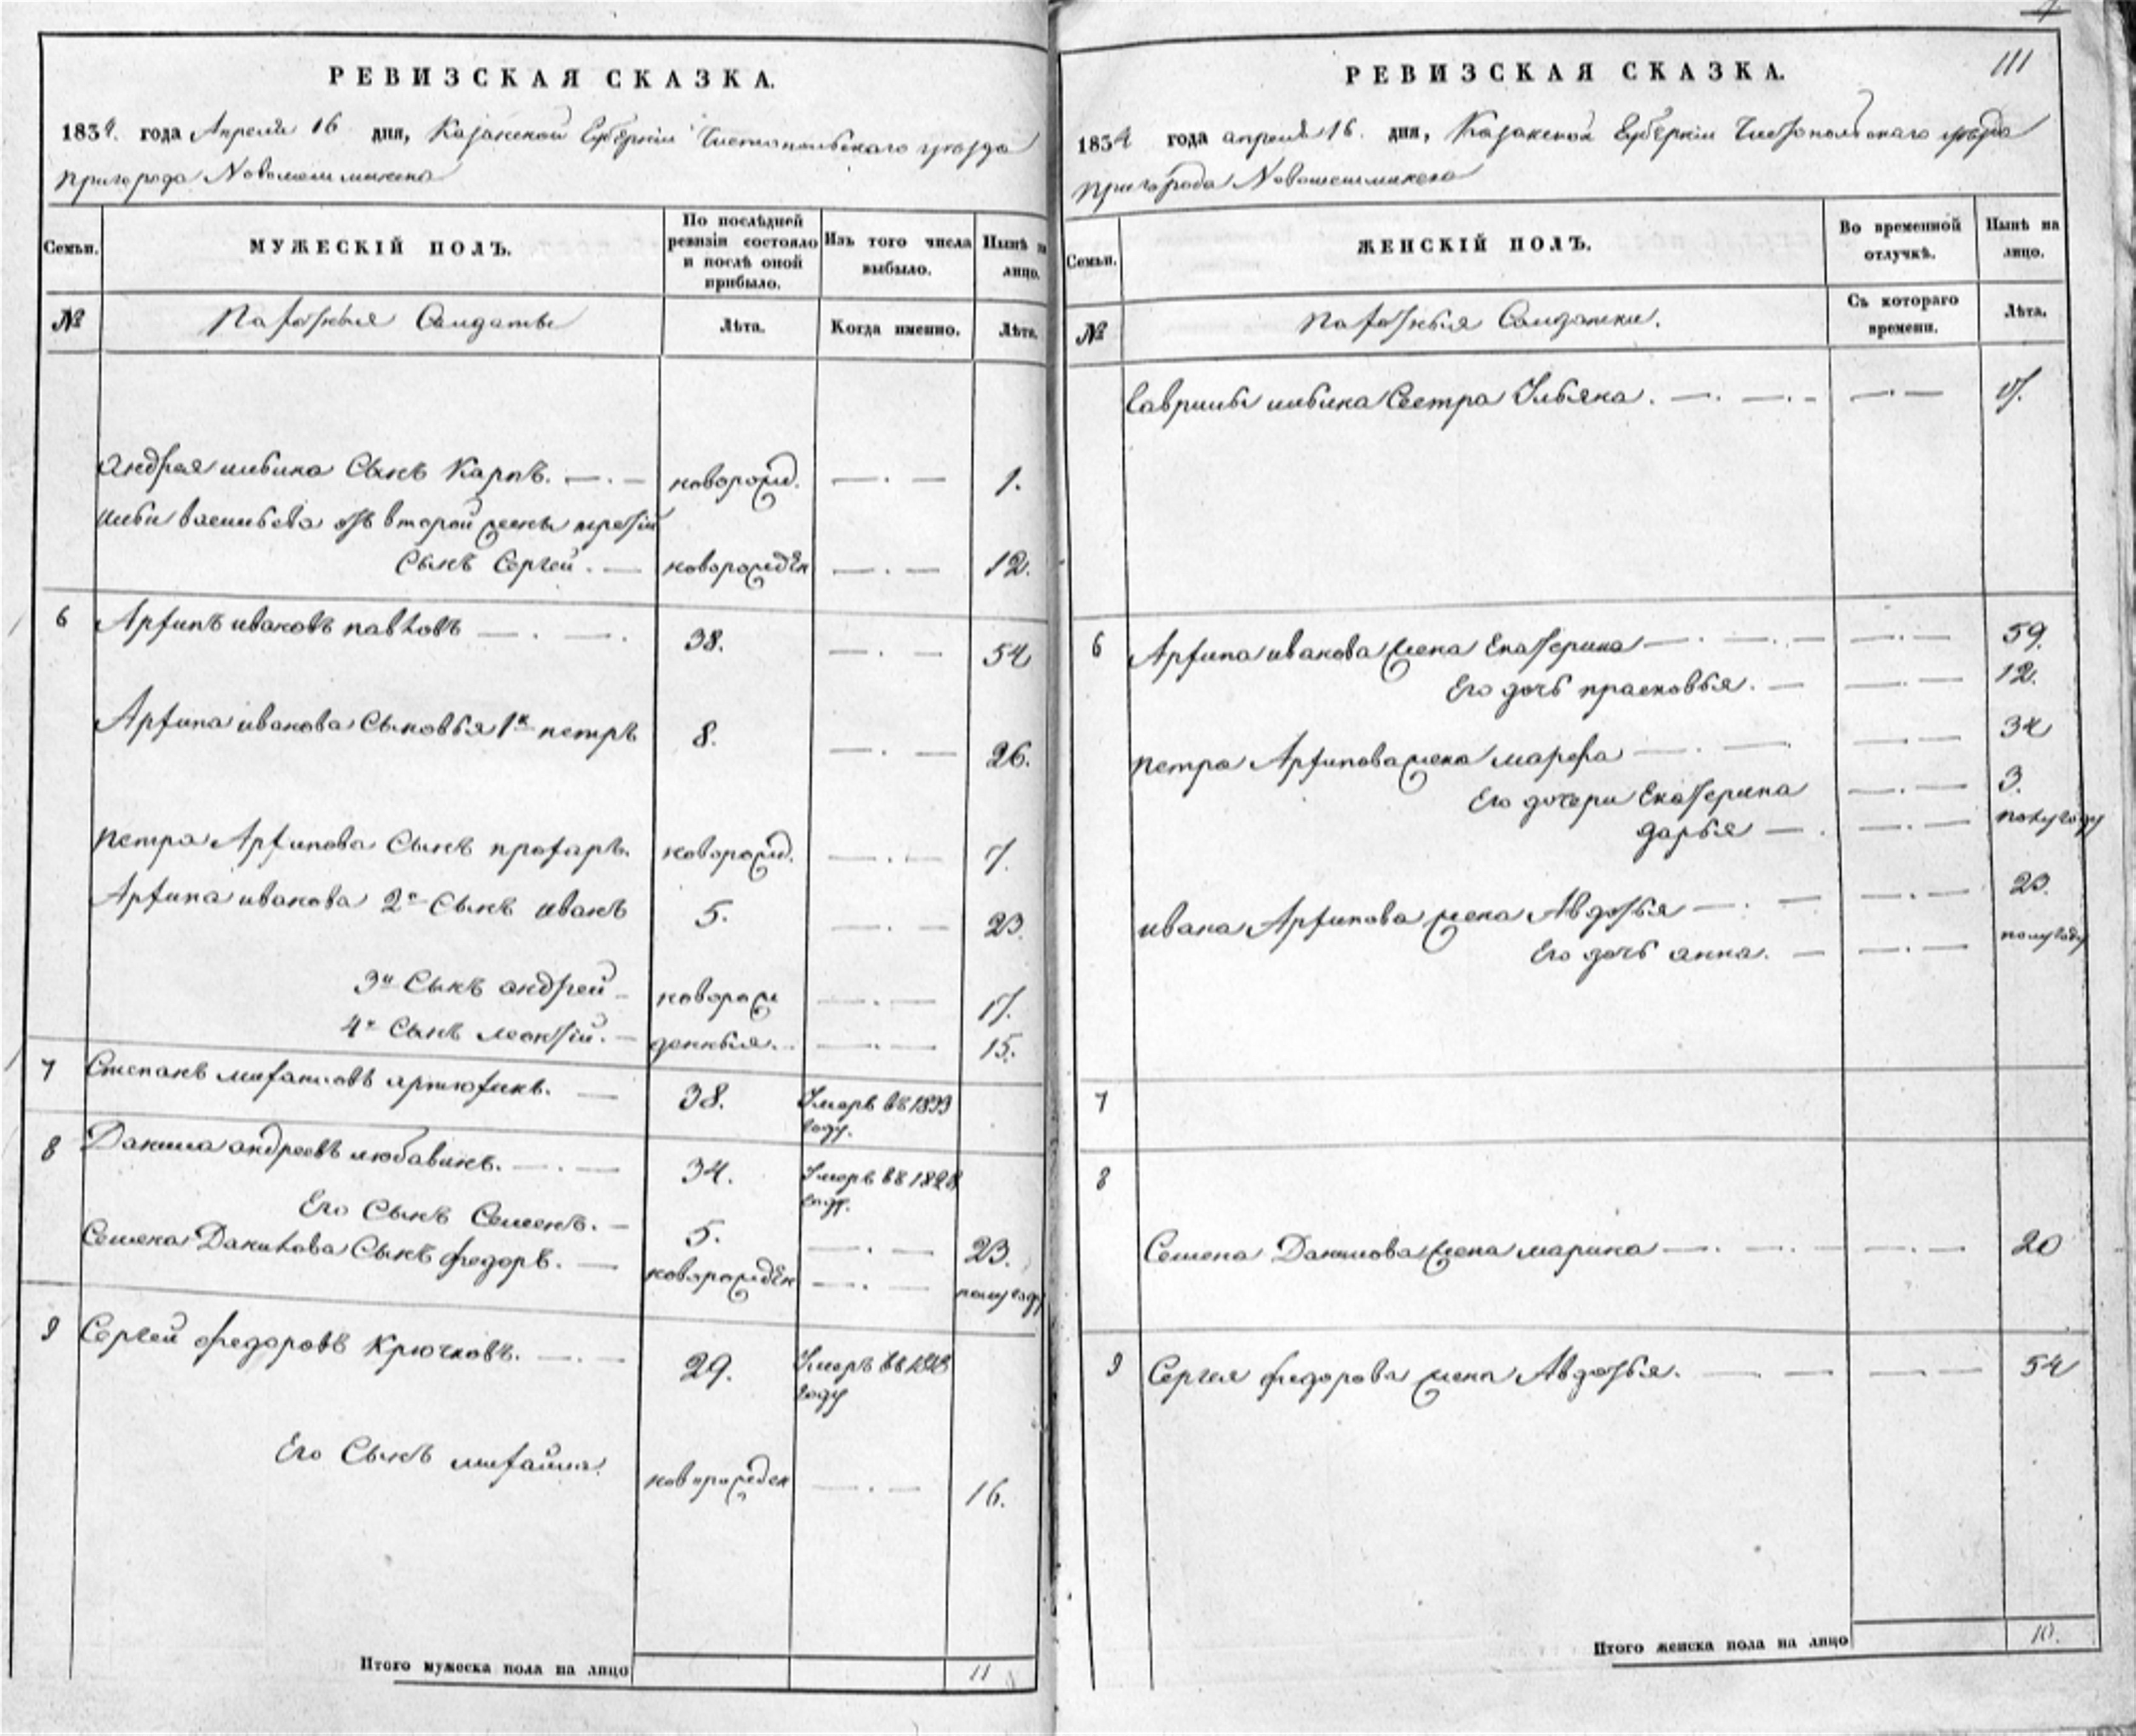 111
РЕВИЗСКАЯ СКАЗКА.
1834. года Апреля 16 дня, Казанской Губернии Чистопольского уезда
пригорода Новошешминска
Семьи.
МУЖЕСКІЙ ПОЛЪ.
По послѣдней ревизіи состояло и послѣ оной прибыло.
Изъ того числа выбыло.
Нынѣ на лицо.
№
Пахотныя Солдаты
Лѣта.
Когда именно.
Лѣта.
Андрея ильина Сынъ Карпъ. новорожд. 1.
ильи васильева отъ второй жены третій
Сынъ Сергей. новорожден 12.
6 Архипъ ивановъ павловъ 38. 54
Архипа иванова Сыновья 1й петръ 8. 26.
петра Архипова Сынъ прохаръ. новорожд. 7.
Архипа иванова 2й Сынъ иванъ 5. 23.
3й Сынъ андрей новорож 17.
4й Сынъ леонтій. денныя. 15.
7 Степанъ михайловъ артюхинъ. 38. Умеръ въ 1833 году.
8 Данила андреевъ любавинъ. 34. Умеръ въ 1828 году.
Его Сынъ Семенъ. 5. 23.
Семена Данилова Сынъ федоръ. новорожден полугоду
9 Сергей федоровъ Крючковъ. 29. Умеръ въ году
Его Сынъ михайла. новорожден 16.
Итого мужеска пола на лицо 11
РЕВИЗСКАЯ СКАЗКА.
1834 года апреля 16. дня, Казанской Губернии Чистопольскаго уезда
пригорода Новошешминска
Семьи.
ЖЕНСКІЙ ПОЛЪ.
Во временной отлучкѣ.
Нынѣ на лицо.
№
Пахотныя Солдатки.
Съ котораго времени.
Лѣта.
Гаврилы ильина Сестра Ульяна. 17.
6 Архипа иванова жена Екатерина 59.
Его дочь прасковья. 12.
петра Архипова жена марфа 34
Его дочери Екатерина 3.
дарья полугоду
ивана Архипова жена Авдотья 23.
Его дочь анна. полугоду
7
8
Семена Данилова жена марина 20
9 Сергея федорова жена Авдотья. 54
Итого женска пола на лицо 10.